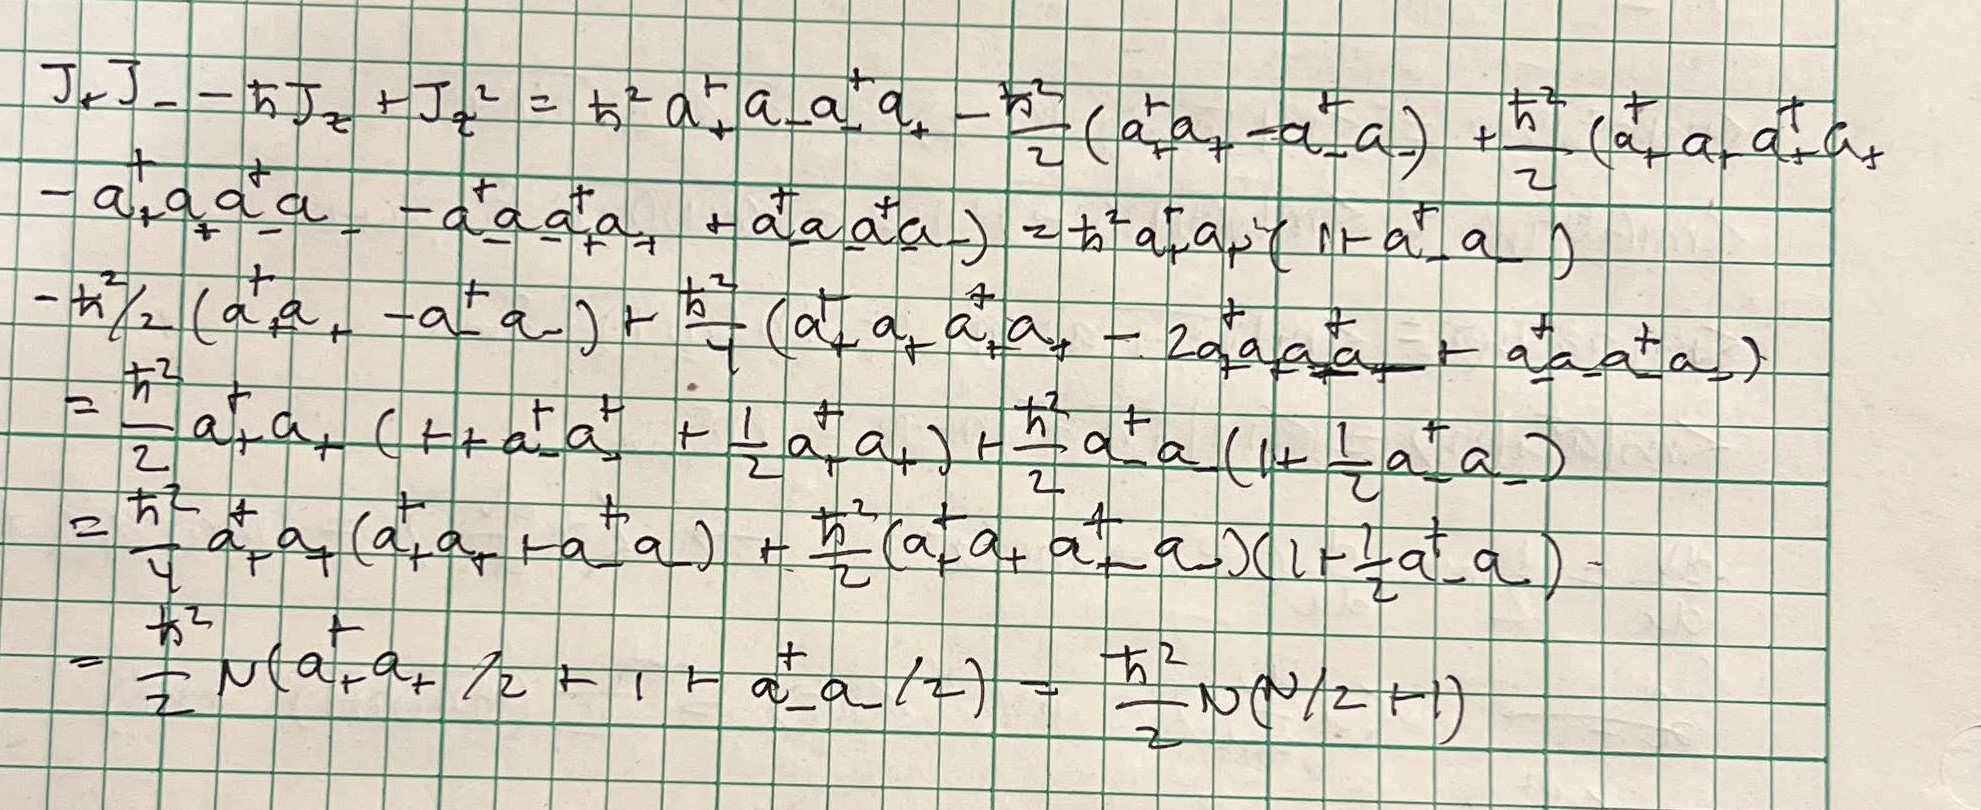 J₊J₋ - ħJ_z + J_z² = ħ² a₊† a₋ a₋† a₊ - ħ²/2 (a₊† a₊ - a₋† a₋) + ħ²/2 (a₊† a₊ a₊† a₊
- a₊† a₊ a₋† a₋ - a₋† a₋ a₊† a₊ + a₋† a₋ a₋† a₋) = ħ² a₊† a₊ (1 + a₋† a₋)
- ħ²/2 (a₊† a₊ - a₋† a₋) + ħ²/4 (a₊† a₊ a₊† a₊ - 2a₊† a₊ a₋† a₋ + a₋† a₋ a₋† a₋)
= ħ²/2 a₊† a₊ (1 + a₋† a₋† + 1/2 a₊† a₊) + ħ²/2 a₋† a₋ (1 + 1/2 a₋† a₋)
= ħ²/4 a₊† a₊ (a₊† a₊ + a₋† a₋) + ħ²/2 (a₊† a₊ a₋† a₋)(1 + 1/2 a₋† a₋) -
= ħ²/2 N(a₊† a₊ /2 + 1 + a₋† a₋ /2) = ħ²/2 N(N/2 + 1)